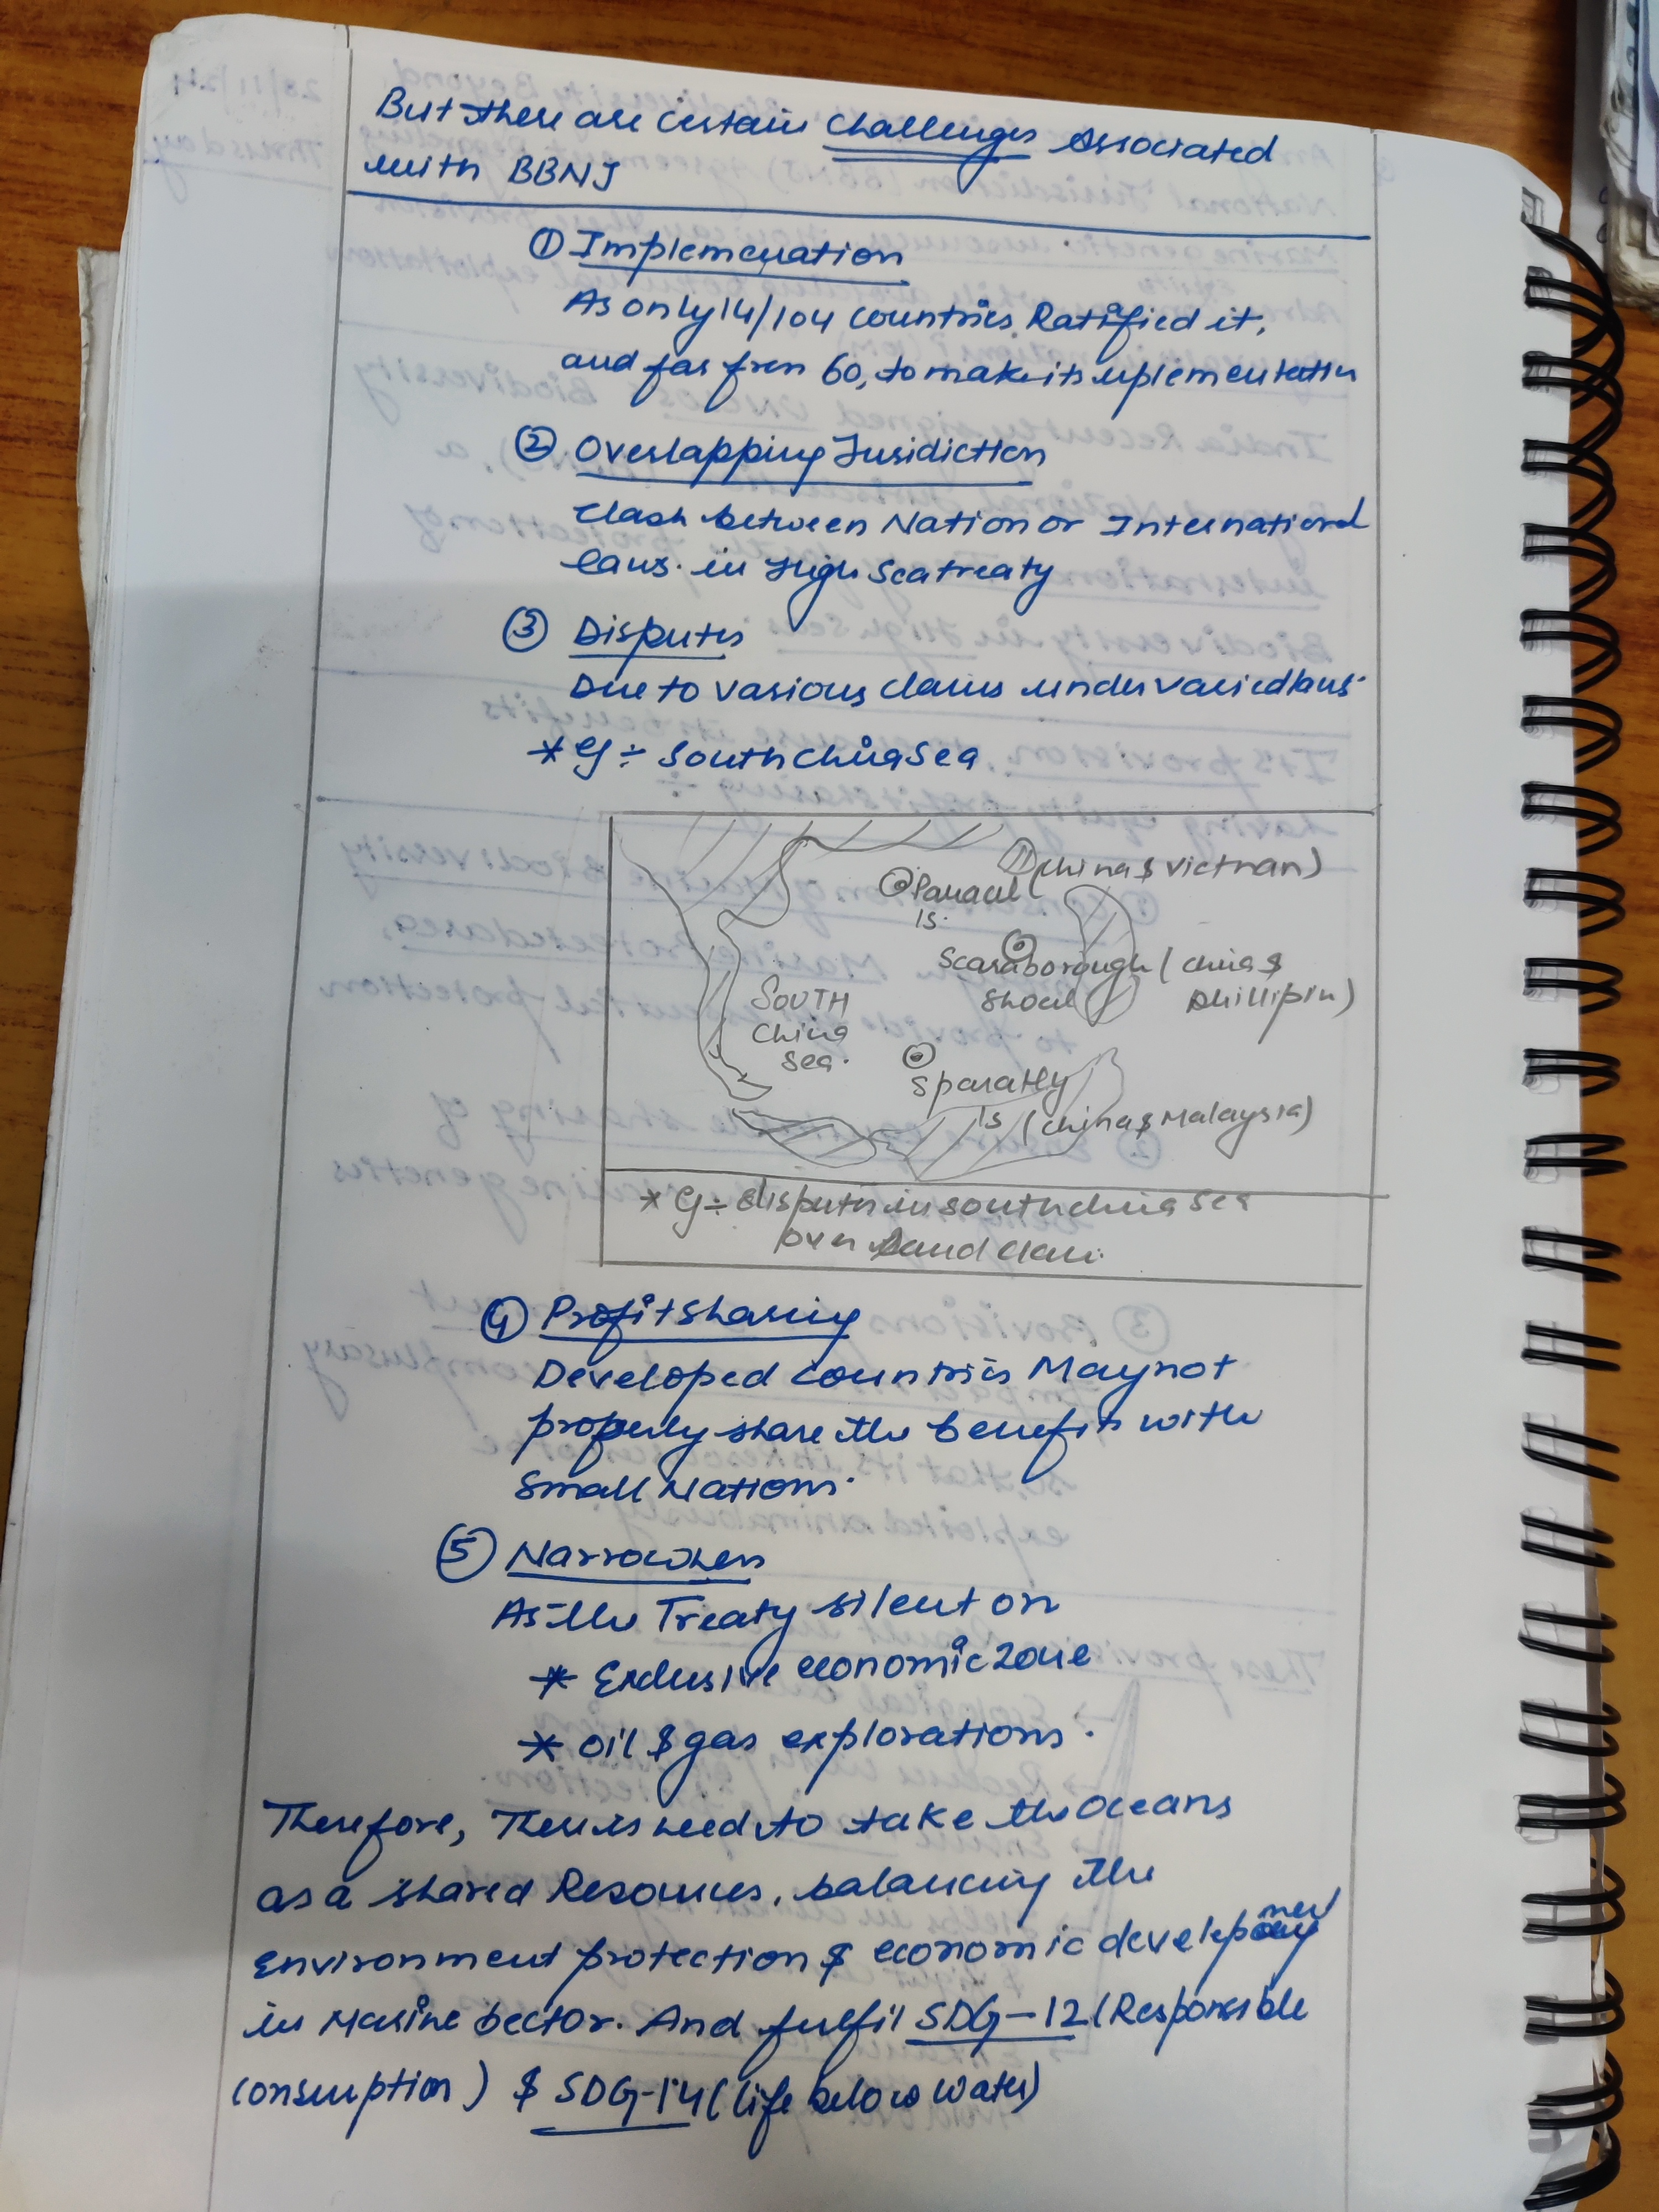 But there are certain challenges associated
with BBNJ
① Implemenation
As only 14/104 countries Ratified it,
and far from 60, to make its implementation
② Overlapping Jurisdiction
clash between Nation or International
laws. in High Sea treaty
③ Disputes
Due to various claims under varied laws.
* eg ÷ South China Sea
(China & Vietnam)
Paracel
Is.
Scaraborough (China &
Shoal Phillipin)
SOUTH
China
Sea.
Sparatly
Is (China & Malaysia)
* eg ÷ disputes in south china sea
over land claim.
④ Profit Sharing
Developed countries May not
properly share the benefits with
Small Nations.
⑤ Narrowness
As the Treaty silent on
* Exclusive economic zone
* oil & gas explorations.
Therefore, There is need to take the oceans
as a shared Resources, balancing the
Environment protection & economic development
in Marine sector. And fulfil SDG-12 (Responsible
consumption) & SDG-14 (life below water)